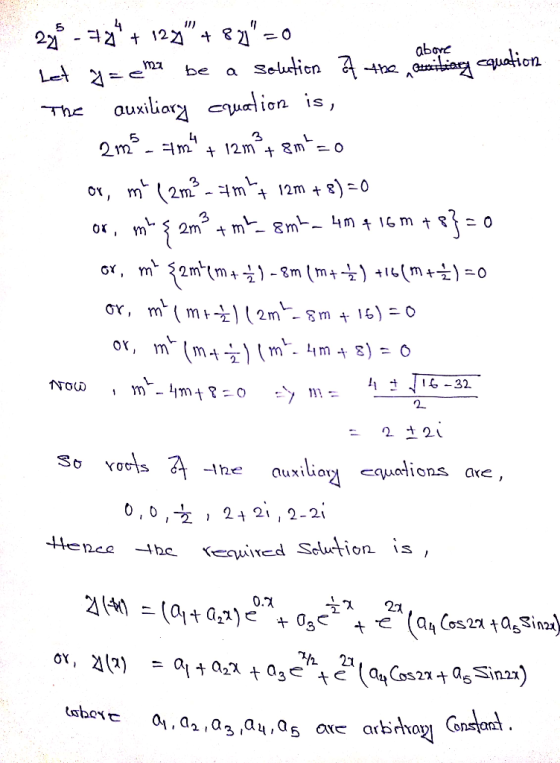 2y⁵ - 7y⁴ + 12y''' + 8y'' = 0
Let y = e^{mx} be a solution of the above equation
The auxiliary equation is,
2m⁵ - 7m⁴ + 12m³ + 8m² = 0
or, m² (2m³ - 7m² + 12m + 8) = 0
or, m² { 2m³ + m² - 8m² - 4m + 16m + 8} = 0
or, m² {2m²(m + ½) - 8m (m + ½) + 16(m + ½) = 0
or, m² (m + ½) (2m² - 8m + 16) = 0
or, m² (m + ½) (m² - 4m + 8) = 0
Now, m² - 4m + 8 = 0 => m = (4 ± √(16 - 32))/2
= 2 ± 2i
So roots of the auxiliary equations are,
0, 0, ½, 2 + 2i, 2 - 2i
Hence the required solution is,
y(x) = (a₁ + a₂x) e^{0.x} + a₃e^{½x} + e^{2x} (a₄ Cos2x + a₅ Sin2x)
or, y(x) = a₁ + a₂x + a₃e^{x/2} + e^{2x} (a₄ Cos2x + a₅ Sin2x)
where a₁, a₂, a₃, a₄, a₅ are arbitrary Constant.